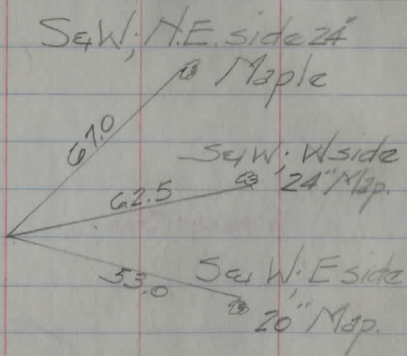 S&W; N.E. side 24"
Maple
67.0
S&W; W side
62.5 24" Map.
53.0 S& W; E side
20" Map.